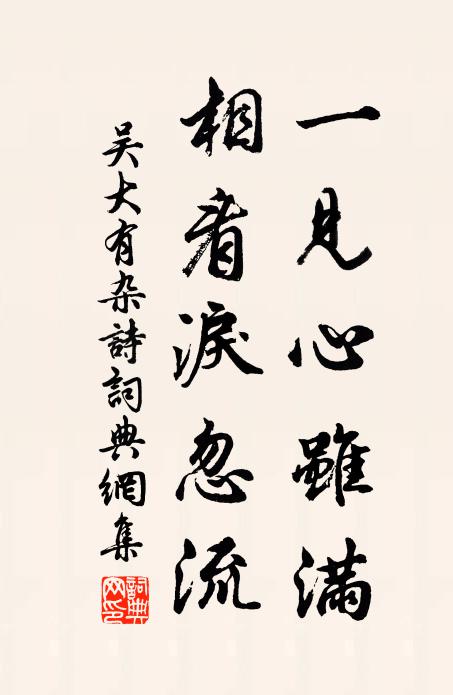 一見心雖滿
相看淚忽流
吴大有杂詩詞典網集
詞典网印